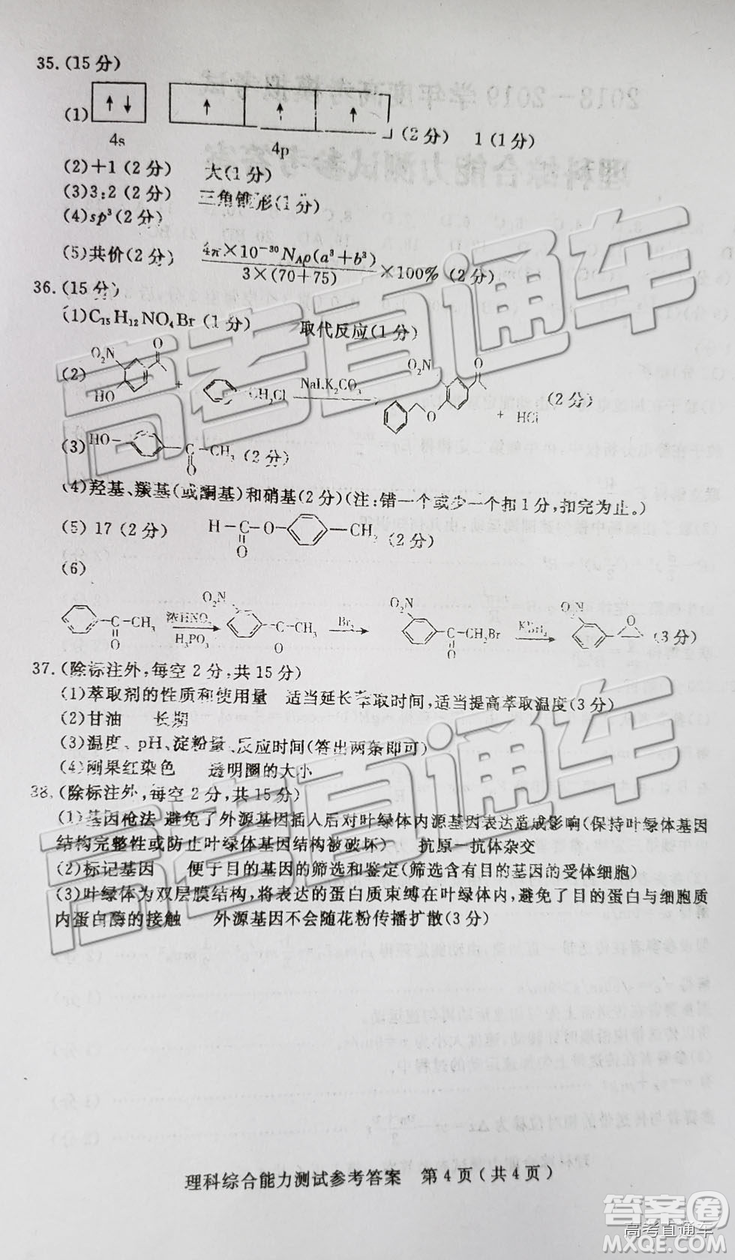 35.(15分)
(1) ↑↓ ↑ ↑ ↑ (2分) 1(1分)
4s 4p
(2)+1(2分) 大(1分)
(3)3:2(2分) 三角锥形(1分)
(4)sp³(2分)
(5)共价(2分) 4π×10⁻³⁰N_Aρ(a³+b³)/3×(70+75)×100%(2分)
36.(15分)
(1)C₁₅H₁₂NO₄Br(1分) 取代反应(1分)
(2) O₂N HO + CH₂Cl NaI.K₂CO₃ O₂N O + HCl (2分)
(3) HO C CH₃ O (2分)
(4)羟基、羰基(或酮基)和硝基(2分)(注:错一个或少一个扣1分,扣完为止。)
(5) 17(2分) H—C—O CH₃ O (2分)
(6)
C—CH₃ O 浓HNO₃ H₃PO₃ O₂N C—CH₃ O Br₂ O₂N C—CH₂Br O KBH₄ O₂N O (3分)
37.(除标注外,每空2分,共15分)
(1)萃取剂的性质和使用量 适当延长萃取时间,适当提高萃取温度(3分)
(2)甘油 长期
(3)温度、pH、淀粉量、反应时间(答出两条即可)
(4)刚果红染色 透明圈的大小
38.(除标注外,每空2分,共15分)
(1)基因枪法 避免了外源基因插入后对叶绿体内源基因表达造成影响(保持叶绿体基因
结构完整性或防止叶绿体基因结构被破坏) 抗原—抗体杂交
(2)标记基因 便于目的基因的筛选和鉴定(筛选含有目的基因的受体细胞)
(3)叶绿体为双层膜结构,将表达的蛋白质束缚在叶绿体内,避免了目的蛋白与细胞质
内蛋白酶的接触 外源基因不会随花粉传播扩散(3分)
理科综合能力测试参考答案 第4页(共4页)
高考直通车
高考直通车
答案圈
MXQE.COM
高考直通车